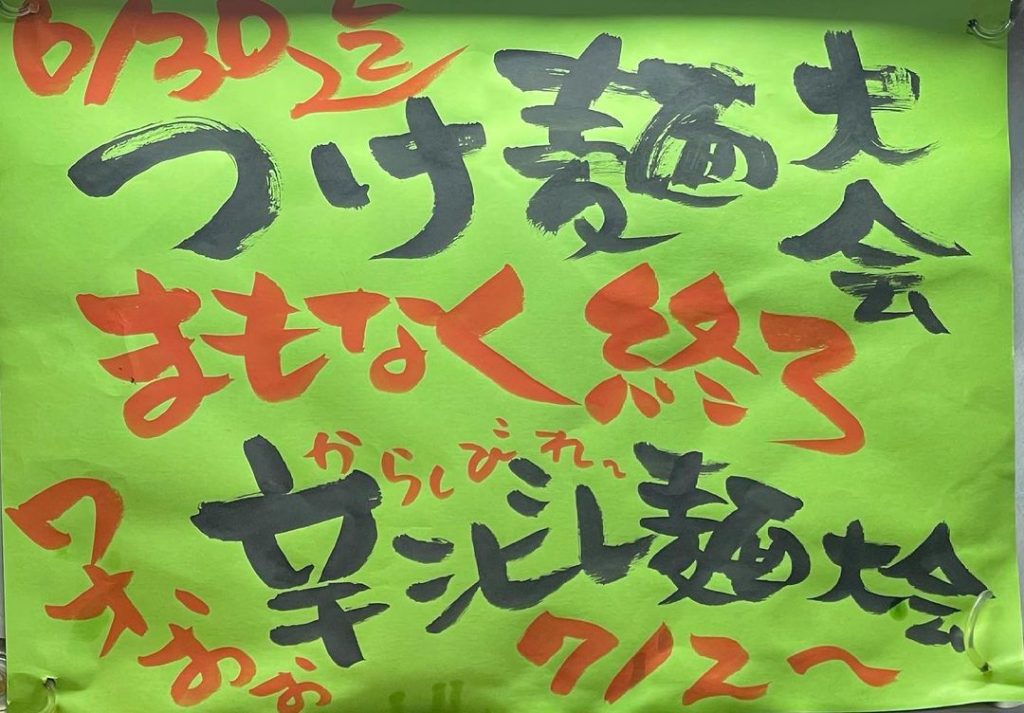 6/30迄
つけ麺大会
まもなく終了
からしびれ〜
辛シビレ麺大会
ワオ、おぉ
7/2〜